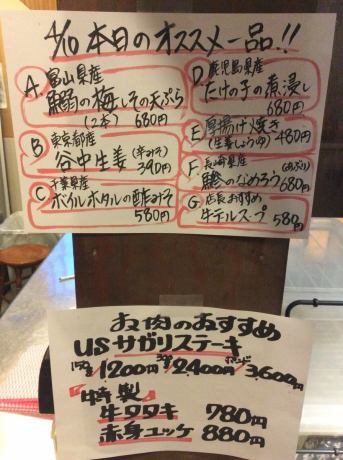 4/10 本日のオススメ一品!!
A. 富山県産
鰯の梅しその天ぷら
(2本) 680円
B 東京都産
谷中生姜 (辛みそ)
390円
C 千葉県産
ボイルホタルの酢みそ
580円
D 鹿児島県産
たけの子の煮浸し
680円
E 厚揚げ焼き
(生姜しょう油) 480円
F 長崎県産
鯵のなめろう 680円
G 店長おすすめ
牛テールスープ 580円
お肉のおすすめ
US サガリステーキ
1200円 2,400円 3,600円
特製
牛タタキ 780円
赤身ユッケ 880円